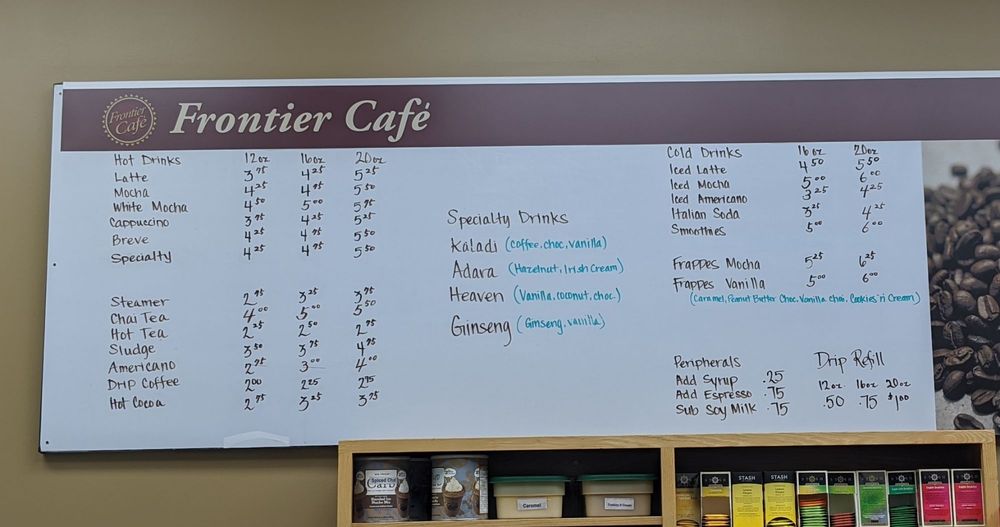 Frontier Café
Frontier Café
Hot Drinks 12oz 16oz 20oz
Latte 3.75 4.25 5.25
Mocha 4.25 4.75 5.50
White Mocha 4.50 5.00 5.75
Cappuccino 3.75 4.25 5.25
Breve 4.25 4.75 5.50
Specialty 4.25 4.75 5.50
Steamer 2.75 3.25 3.75
Chai Tea 4.00 5.00 5.50
Hot Tea 2.25 2.50 2.75
Sludge 3.50 3.75 4.75
Americano 2.75 3.00 4.00
Drip Coffee 2.00 2.25 2.75
Hot Cocoa 2.75 3.25 3.75
Specialty Drinks
Kaladi (coffee, choc, vanilla)
Adara (Hazelnut, Irish Cream)
Heaven (Vanilla, coconut, choc.)
Ginseng (Ginseng, vanilla)
Cold Drinks 16oz 20oz
Iced Latte 4.50 5.50
Iced Mocha 5.00 6.00
Iced Americano 3.25 4.25
Italian Soda 3.25 4.25
Smoothies 5.00 6.00
Frappes Mocha 5.25 6.25
Frappes Vanilla 5.00 6.00
(Caramel, Peanut Butter Choc. Vanilla chai, Cookies 'n Cream)
Peripherals
Add Syrup .25
Add Espresso .75
Sub Soy Milk .75
Drip Refill
12oz 16oz 20oz
.50 .75 $1.00
Spiced Chai
Caramel
STASH
STASH